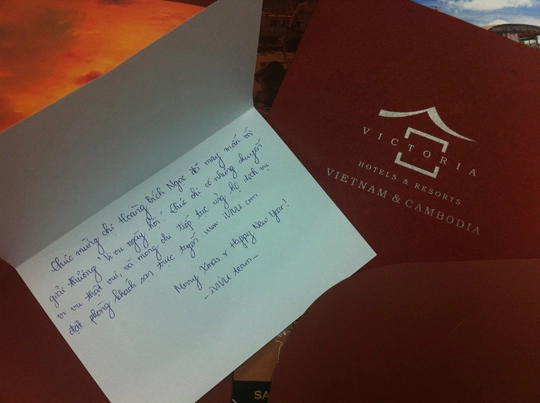 Chúc mừng chị Hoàng Bích Ngọc đã may mắn với
giải thưởng "Vi vu ngày hội". Chúc chị có những chuyến
vi vu thật vui, và mong chị tiếp tục ủng hộ dịch vụ
đặt phòng khách sạn trực tuyến www.iVIVU.com
Merry Xmas & Happy New Year!
- iVIVU team -
VICTORIA
HOTELS & RESORTS
VIETNAM & CAMBODIA
SA